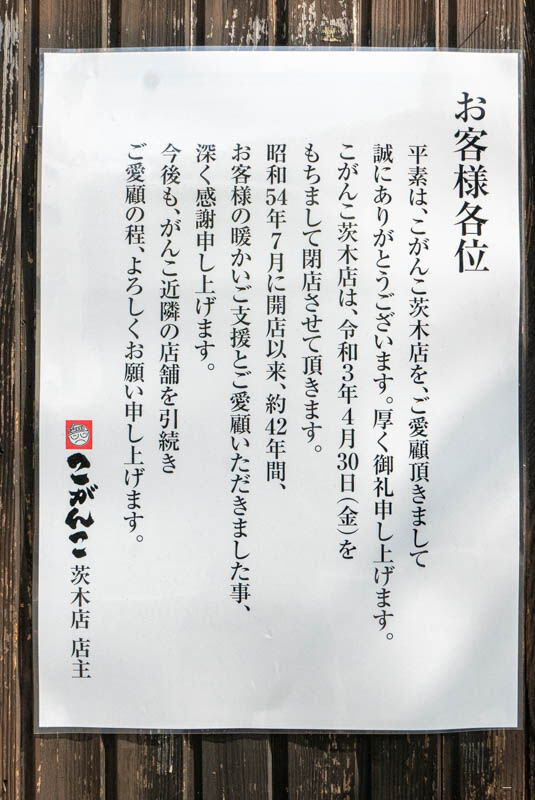 お客様各位
平素は、こがんこ茨木店を、ご愛顧頂きまして
誠にありがとうございます。厚く御礼申し上げます。
こがんこ茨木店は、令和3年4月30日(金)を
もちまして閉店させて頂きます。
昭和54年7月に開店以来、約42年間、
お客様の暖かいご支援とご愛顧いただきました事、
深く感謝申し上げます。
今後も、がんこ近隣の店舗を引続き
ご愛顧の程、よろしくお願い申し上げます。
こがんこ 茨木店 店主